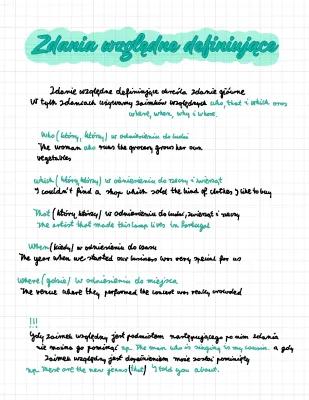 Zdania względne definiujące
Zdanie względne definiujące określa zdanie główne
W tych zdaniach używamy zaimków względnych who, that i which oraz
where, when, why i whose.
Who (który, która) w odniesieniu do ludzi
The woman who runs the grocery grows her own
vegetables
which (który, która) w odniesieniu do rzeczy i zwierząt
I couldn't find a shop which sold the kind of clothes I like to buy
That (który, która) w odniesieniu do ludzi, zwierząt i rzeczy
The artist that made this lamp lives in Portugal
When (kiedy) w odniesieniu do czasu
The year when we started our business was very special for us
where (gdzie) w odniesieniu do miejsca
The venue where they performed the concert was really crowded
!!!
Gdy zaimek względny jest podmiotem następującego po nim zdania
nie można go pominąć np. The man who is singing is my cousin. a gdy
zaimek względny jest dopełnieniem może zostać pominięty
np. These are the new jeans (that) I told you about.